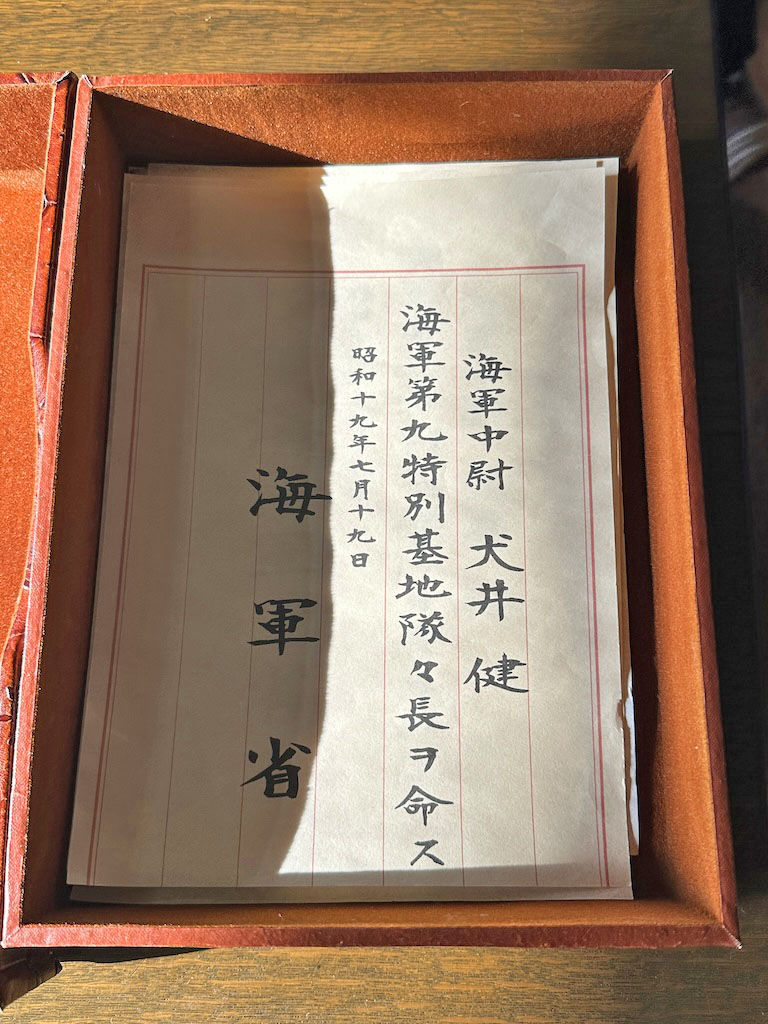 海軍中尉 犬井 健
海軍第九特別基地隊々長ヲ命ス
昭和十九年七月十九日
海軍省